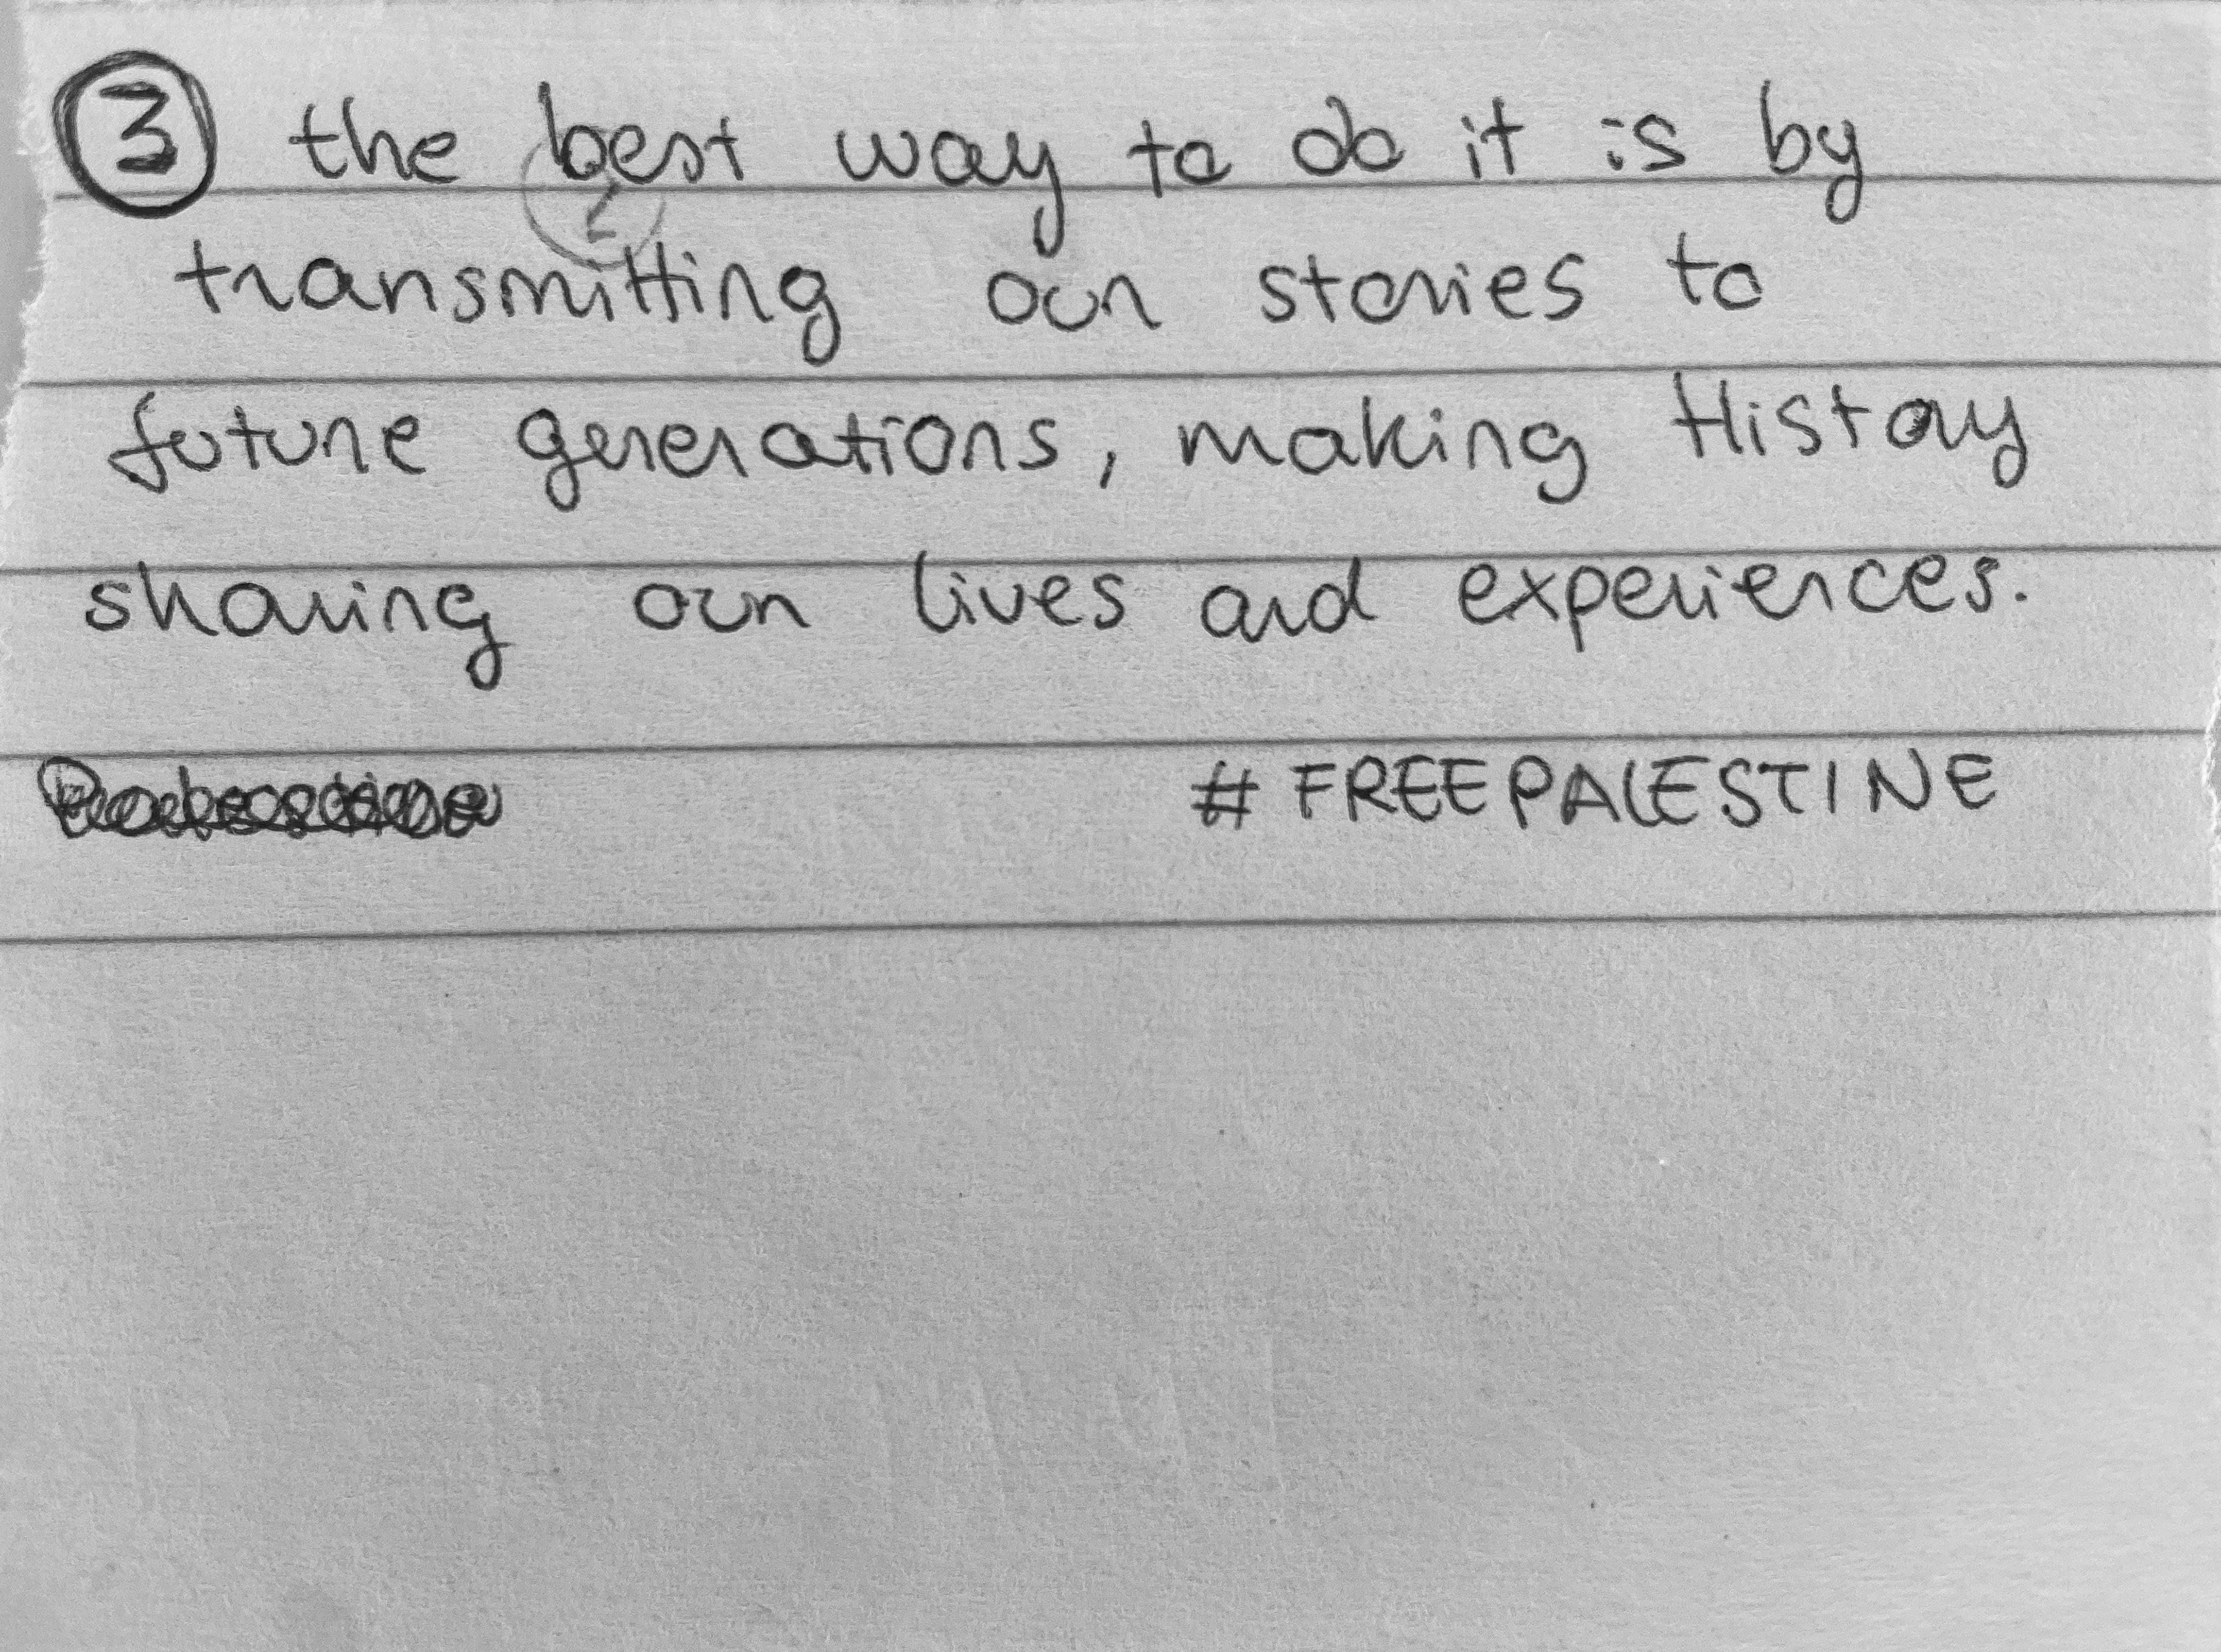 ③ the best way to do it is by
②
transmitting our stories to
future generations, making History
sharing our lives and experiences.
#FREEPALESTINE